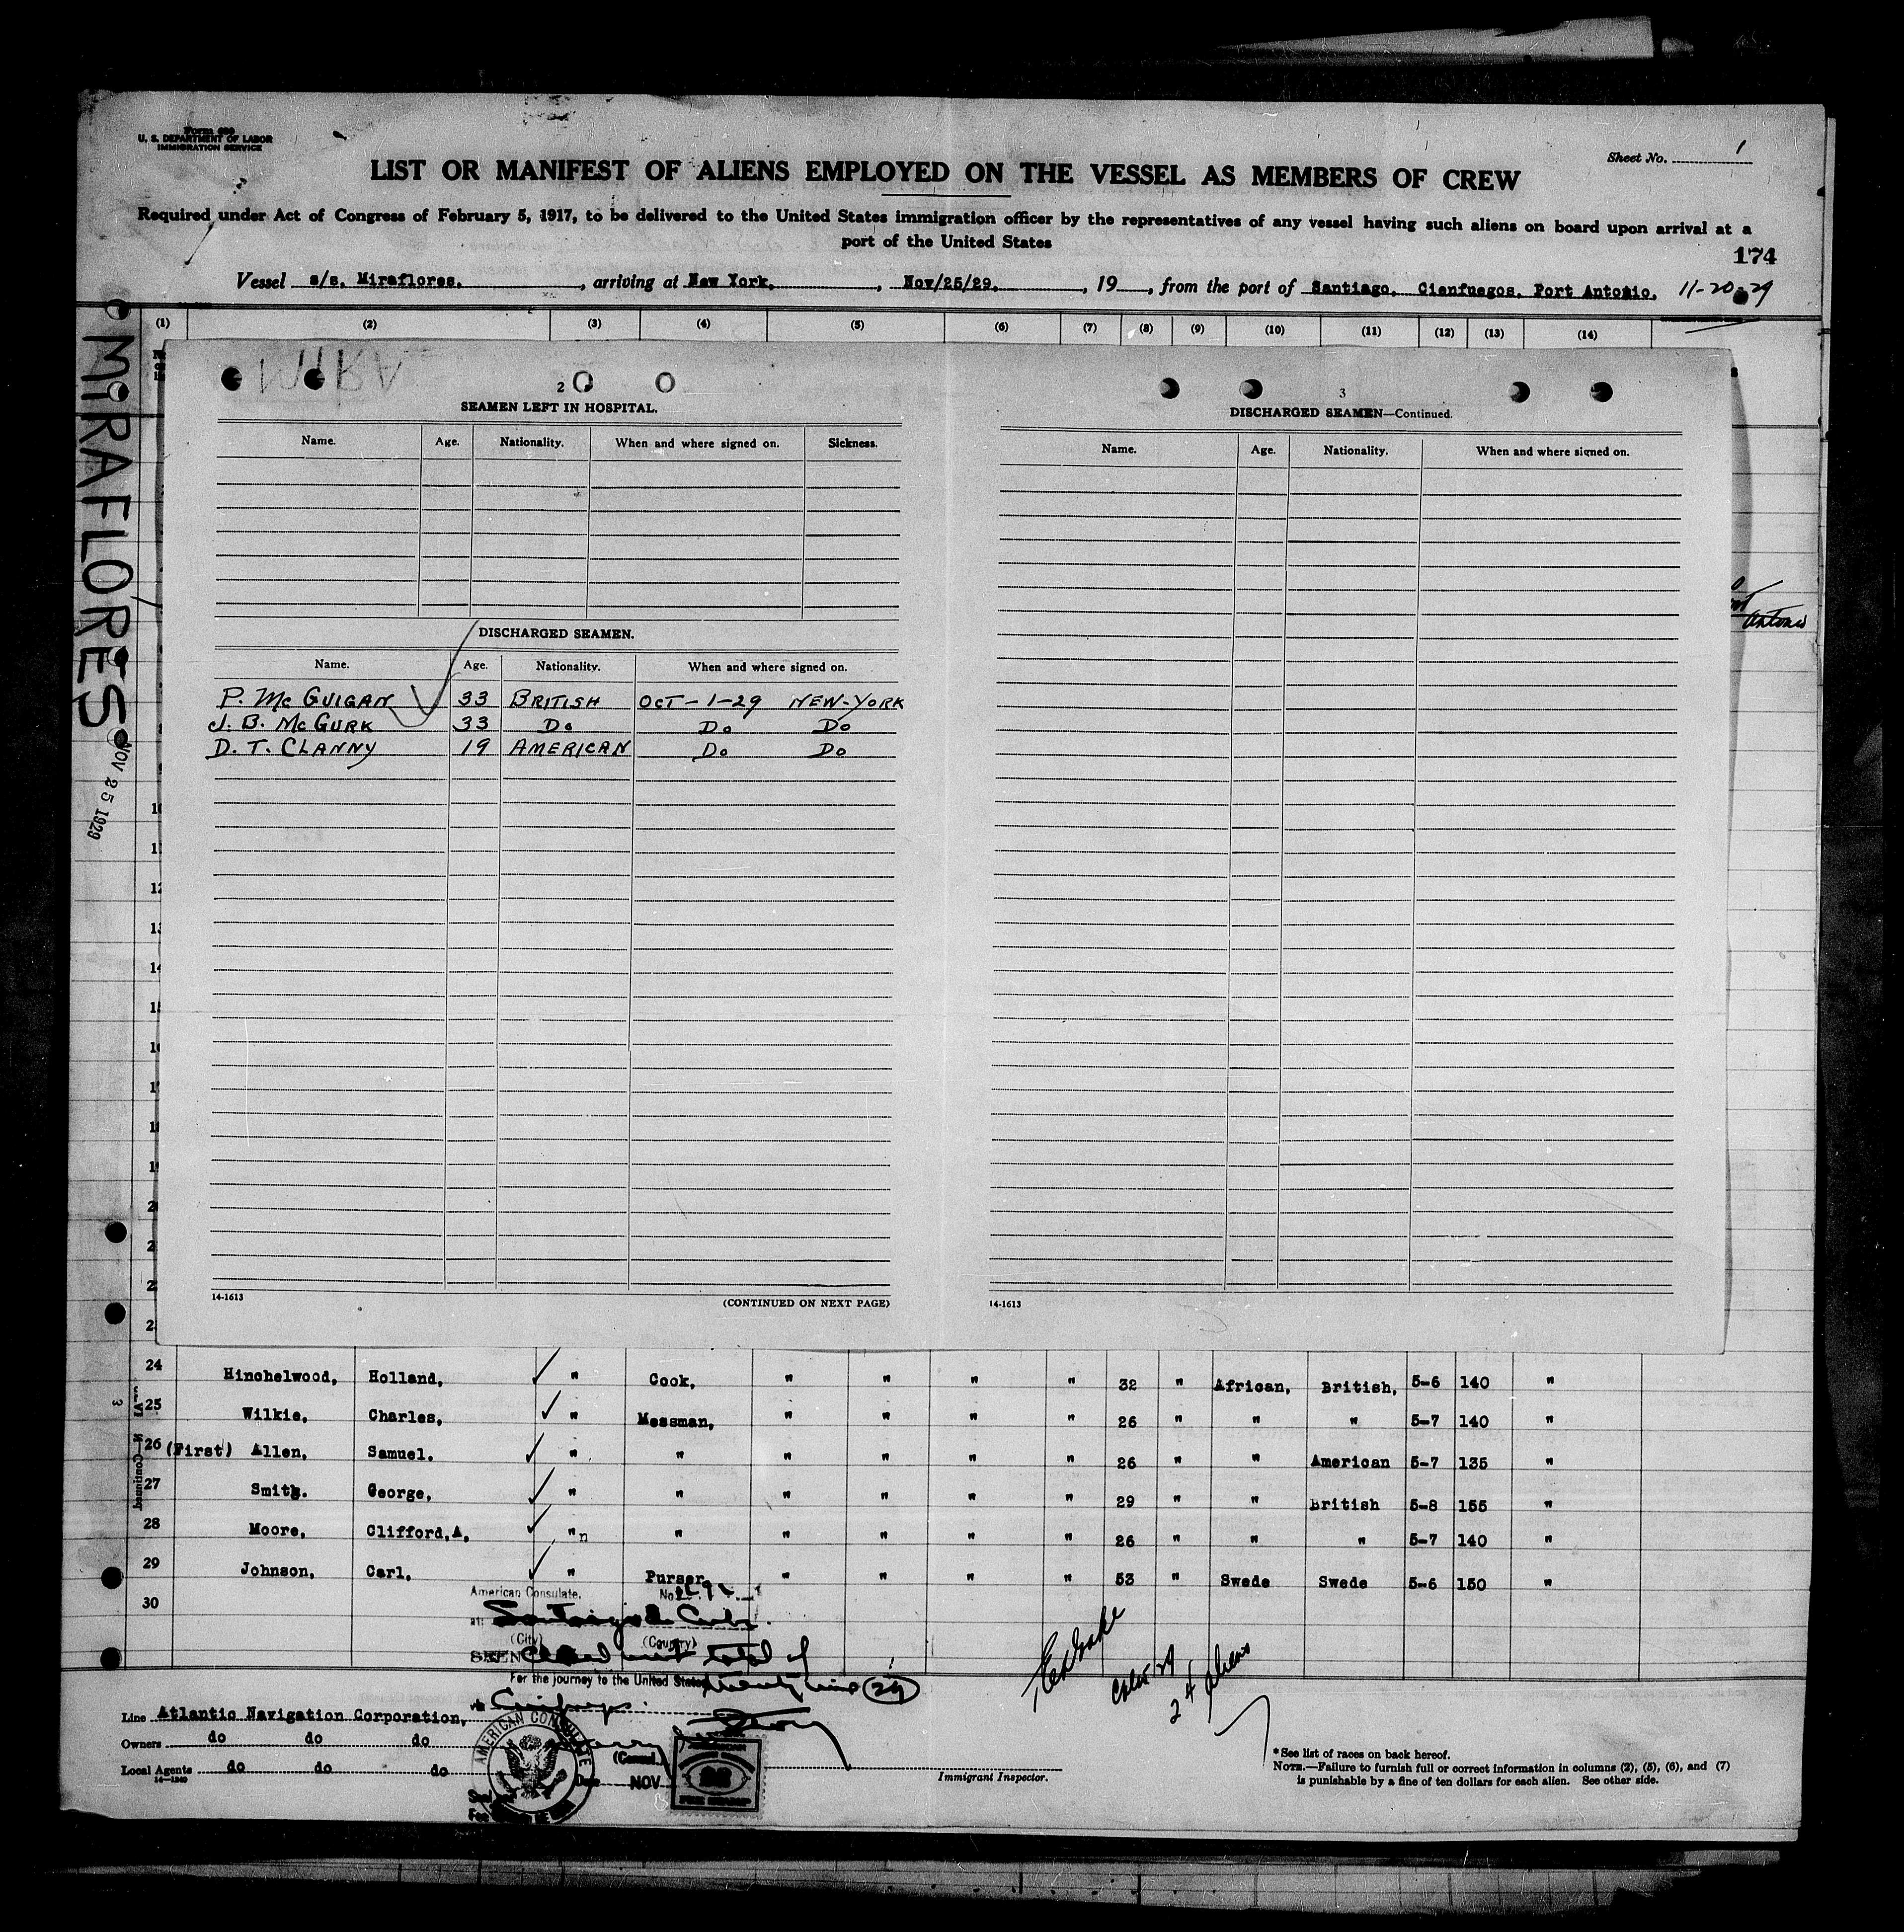 U. S. DEPARTMENT OF LABOR
IMMIGRATION SERVICE
Sheet No. 1
LIST OR MANIFEST OF ALIENS EMPLOYED ON THE VESSEL AS MEMBERS OF CREW
Required under Act of Congress of February 5, 1917, to be delivered to the United States immigration officer by the representatives of any vessel having such aliens on board upon arrival at a
port of the United States
174
Vessel s/s. Miraflores. , arriving at New York. , Nov/25/29. , 19 , from the port of Santiago. Cienfuegos. Port Antonio. 11-20-29
(1) (2) (3) (4) (5) (6) (7) (8) (9) (10) (11) (12) (13) (14)
MIRAFLORES
NOV 25 1929
MIRA
2
SEAMEN LEFT IN HOSPITAL.
Name. Age. Nationality. When and where signed on. Sickness.
DISCHARGED SEAMEN.
Name. Age. Nationality. When and where signed on.
P. McGUIGAN 33 BRITISH OCT-1-29 NEW-YORK
J. B. McGURK 33 Do Do Do
D. T. CLANNY 19 AMERICAN Do Do
14-1613 (CONTINUED ON NEXT PAGE)
3
DISCHARGED SEAMEN—Continued.
Name. Age. Nationality. When and where signed on.
14-1613
Antonio
24 Hinchelwood, Holland, " Cook, " " " " 32 " African, British, 5-6 140 "
25 Wilkie, Charles, " Messman, " " " " 26 " " " 5-7 140 "
26 (First) Allen, Samuel. " " " " " " 26 " " American 5-7 135 "
27 Smith. George, " " " " " " 29 " " British 5-8 155 "
28 Moore, Clifford,A, "n " " " " " 26 " " " 5-7 140 "
29 Johnson, Carl. " Purser " " " " 53 " Swede Swede 5-6 150 "
30
American Consulate.
at: Santiago de Cuba.
(City) (Country)
SEEN Closed with total of
For the journey to the United States twenty nine (29)
Line Atlantic Navigation Corporation,
Owners do do do
Local Agents do do do
14-1240
AMERICAN CONSULATE
(Consul.
Date NOV
24 Aliens
Immigrant Inspector.
* See list of races on back hereof.
NOTE.—Failure to furnish full or correct information in columns (2), (5), (6), and (7)
is punishable by a fine of ten dollars for each alien. See other side.